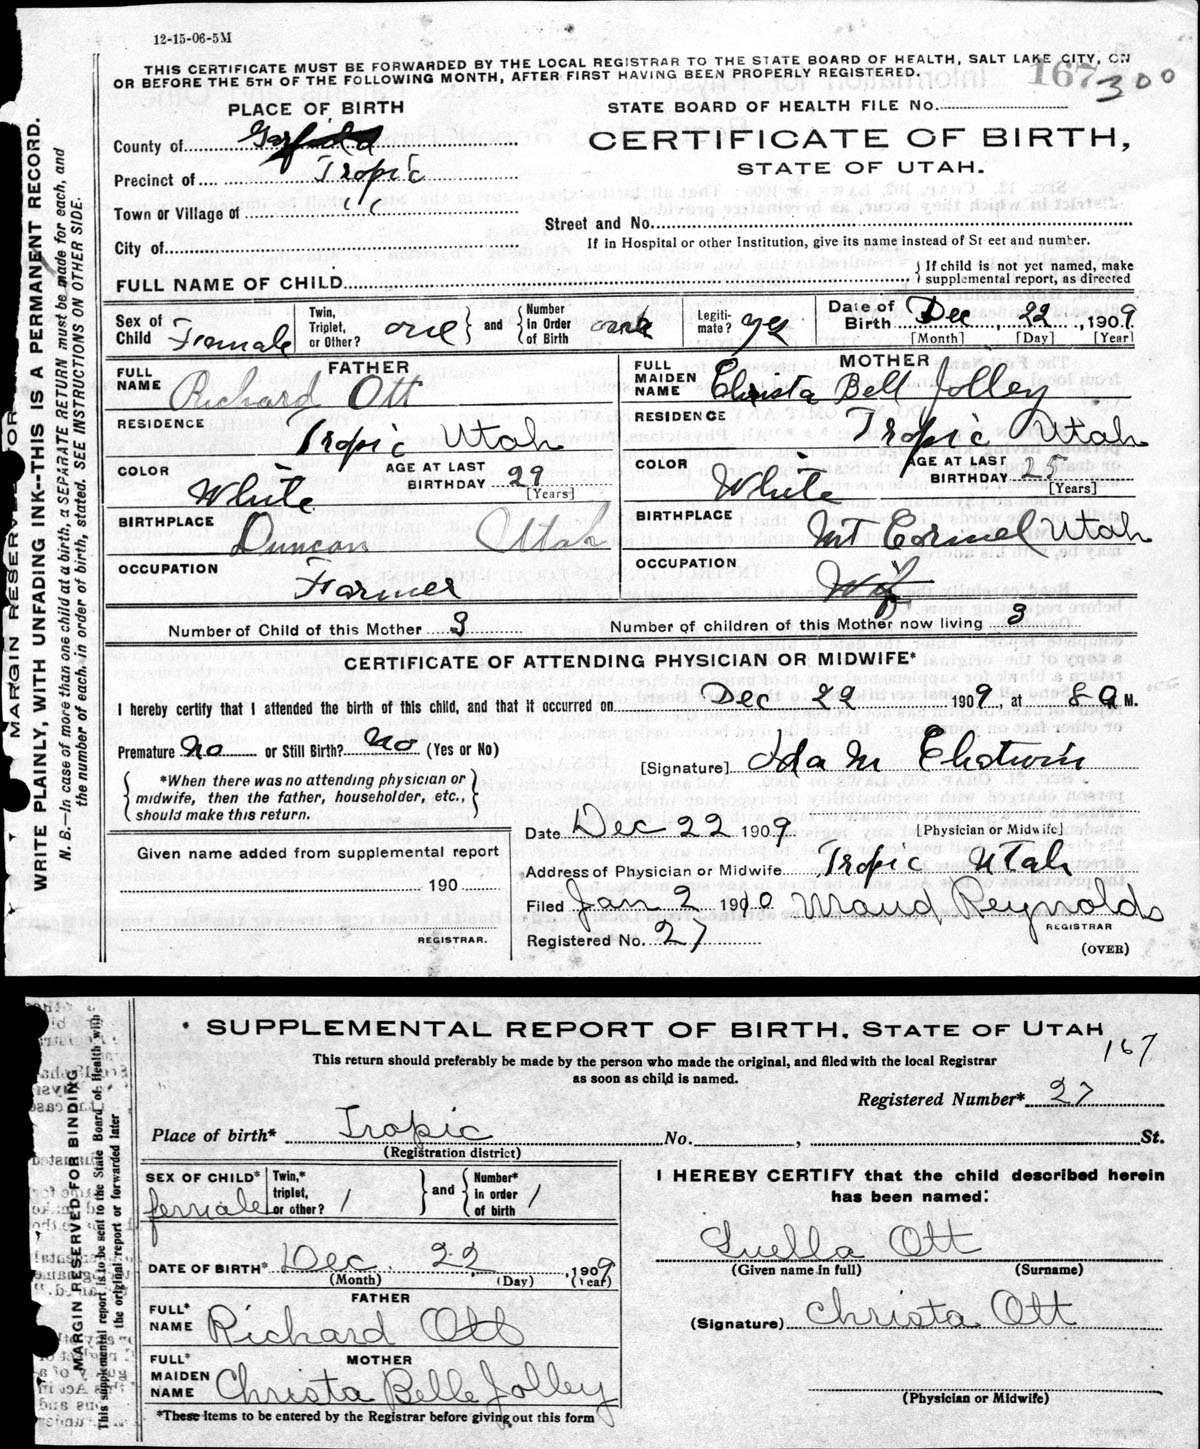 12-15-06-5M
THIS CERTIFICATE MUST BE FORWARDED BY THE LOCAL REGISTRAR TO THE STATE BOARD OF HEALTH, SALT LAKE CITY, ON
OR BEFORE THE 5TH OF THE FOLLOWING MONTH, AFTER FIRST HAVING BEEN PROPERLY REGISTERED.
167
300
PLACE OF BIRTH
STATE BOARD OF HEALTH FILE No.
County of Garfield
CERTIFICATE OF BIRTH,
STATE OF UTAH.
Precinct of Tropic
Town or Village of " "
Street and No.
City of
If in Hospital or other Institution, give its name instead of Street and number.
FULL NAME OF CHILD
If child is not yet named, make
supplemental report, as directed
Sex of Child Female
Twin, Triplet, or Other? one and Number in Order of Birth
Legitimate? yes
Date of Birth Dec 22, 1909
[Month] [Day] [Year]
FATHER
FULL NAME Richard Ott
RESIDENCE Tropic Utah
COLOR White AGE AT LAST BIRTHDAY 29 [Years]
BIRTHPLACE Duncan Utah
OCCUPATION Farmer
MOTHER
FULL MAIDEN NAME Christa Bell Jolley
RESIDENCE Tropic Utah
COLOR White AGE AT LAST BIRTHDAY 25 [Years]
BIRTHPLACE Mt Cormel Utah
OCCUPATION
Number of Child of this Mother 3 Number of children of this Mother now living 3
CERTIFICATE OF ATTENDING PHYSICIAN OR MIDWIFE*
I hereby certify that I attended the birth of this child, and that it occurred on Dec 22 1909, at 8 a M.
Premature No or Still Birth? No (Yes or No)
[Signature] Ida M
*When there was no attending physician or
midwife, then the father, householder, etc.,
should make this return.
Date Dec 22 1909 [Physician or Midwife]
Given name added from supplemental report
190
REGISTRAR.
Address of Physician or Midwife Tropic Utah
Filed Jan 2 1910 Maud Reynolds
REGISTRAR
Registered No. 27
(OVER)
MARGIN RESERVED FOR
WRITE PLAINLY, WITH UNFADING INK--THIS IS A PERMANENT RECORD.
N. B.—In case of more than one child at a birth, a SEPARATE RETURN must be made for each, and
the number of each, in order of birth, stated. SEE INSTRUCTIONS ON OTHER SIDE.
SUPPLEMENTAL REPORT OF BIRTH, STATE OF UTAH
167
This return should preferably be made by the person who made the original, and filed with the local Registrar
as soon as child is named.
Registered Number* 27
Place of birth* Tropic No. , St.
(Registration district)
SEX OF CHILD* female
Twin,* triplet, or other? 1 and Number* in order of birth 1
DATE OF BIRTH* Dec 22, 1909
(Month) (Day) (Year)
FATHER
FULL* NAME Richard Ott
MOTHER
FULL* MAIDEN NAME Christa Belle Jolley
*These items to be entered by the Registrar before giving out this form
I HEREBY CERTIFY that the child described herein
has been named:
Luella Ott
(Given name in full) (Surname)
(Signature) Christa Ott
(Physician or Midwife)
MARGIN RESERVED FOR BINDING
This supplemental report is to be sent to the State Board of Health with
the original report or forwarded later